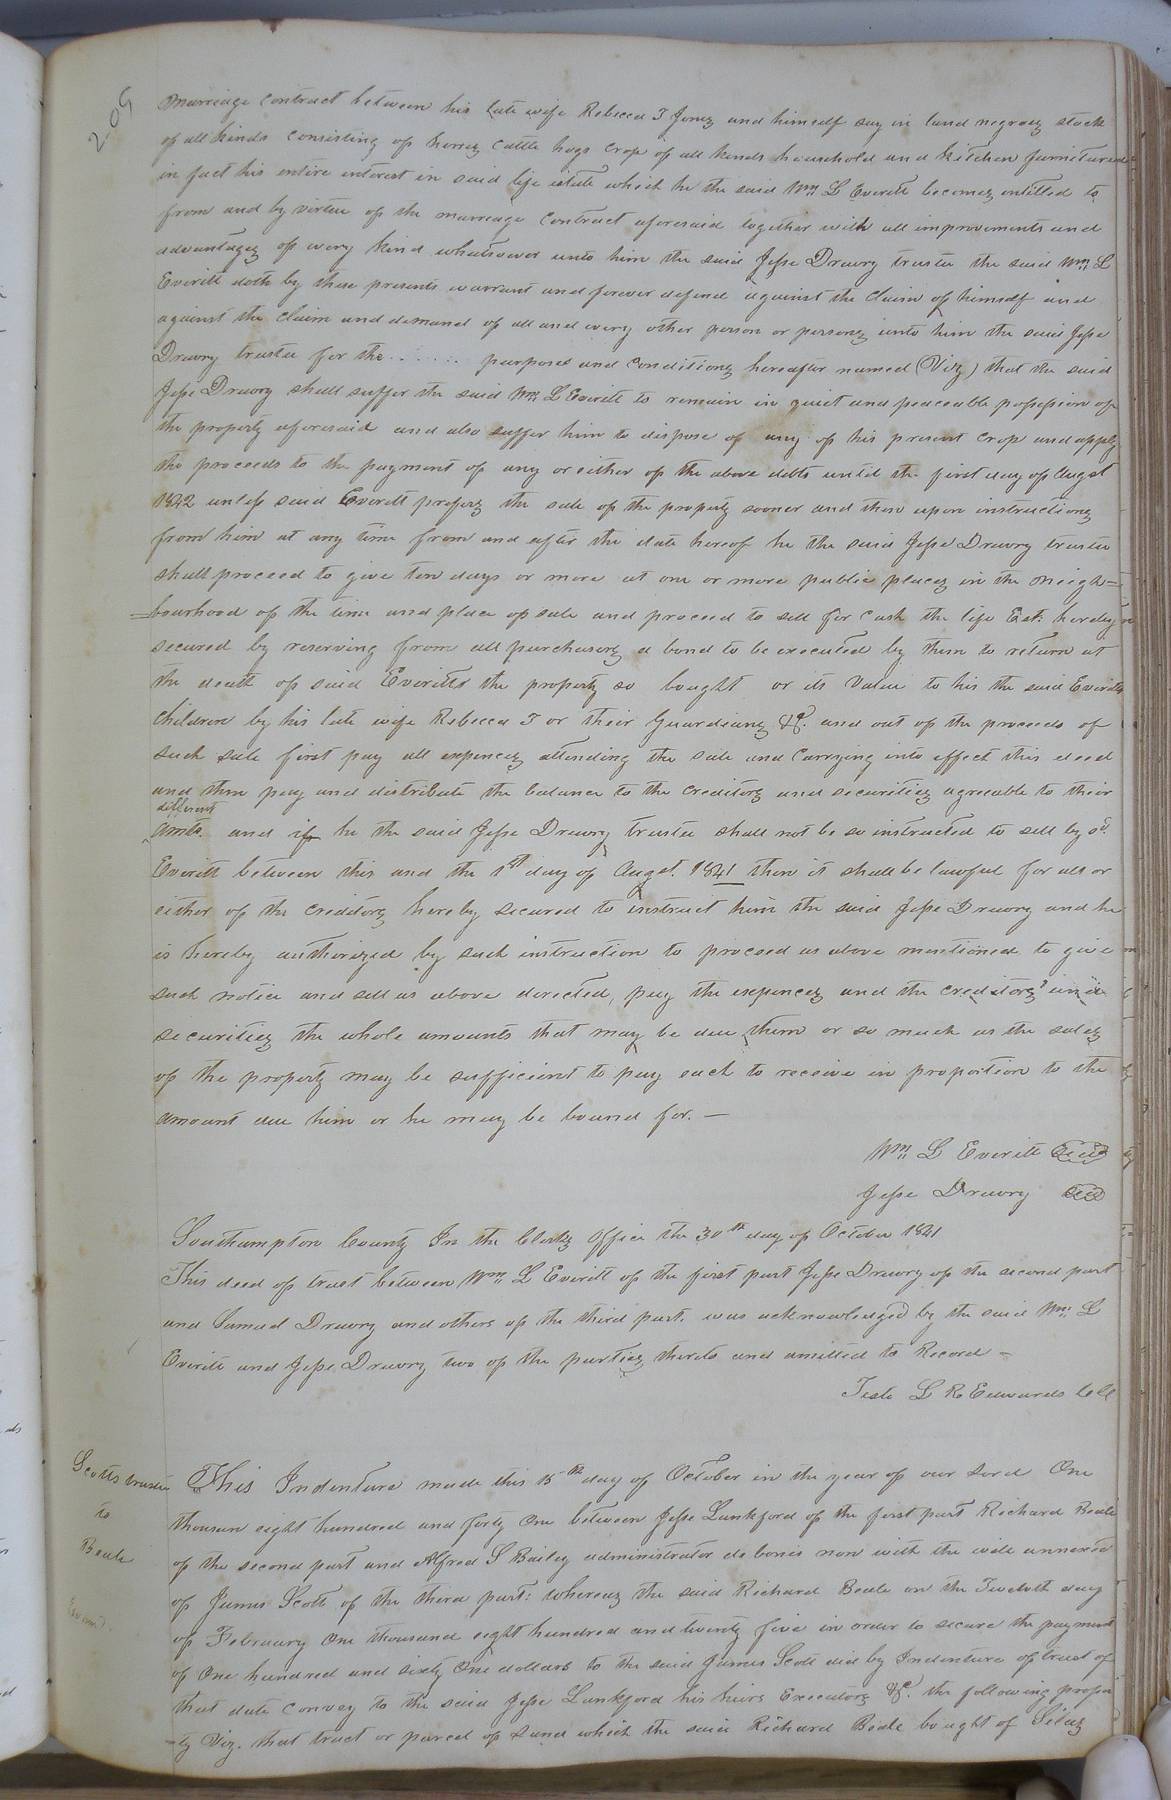 209
Marriage contract between his late wife Rebecca T Jones and himself say in land negroes stock
of all kinds consisting of horses cattle hogs crop of all kinds household and kitchen furniture
in fact his entire interest in said life estate which he the said Wm L Everitt becomes entitled to
from and by virtue of the marriage contract aforesaid together with all improvements and
advantages of every kind whatsoever unto him the said Jesse Drewry trustee the said Wm L
Everitt doth by these presents warrant and forever defend against the claim of himself and
against the claim and demand of all and every other person or persons unto him the said Jesse
Drewry trustee for the ....... purposes and conditions hereafter named (Viz) that the said
Jesse Drewry shall suffer the said Wm L Everitt to remain in quiet and peaceable possession of
the property aforesaid and also suffer him to dispose of any of his present crop and apply
the proceeds to the payment of any or either of the above debts until the first day of Augst
1842 unless said Everitt prefers the sale of the property sooner and then upon instructions
from him at any time from and after the date hereof he the said Jesse Drewry trustee
shall proceed to give ten days or more at one or more public places in the neigh=
=bourhood of the time and place of sale and proceed to sell for cash the life Est: hereby
secured by reserving from all purchasers a bond to be executed by them to return at
the death of said Everitts the property so bought or its value to his the said Everitts
children by his late wife Rebecca T or their Guardians &c. and out of the proceeds of
such sale first pay all expences attending the sale and carrying into effect this deed
and then pay and distribute the balance to the creditors and securities agreeable to their
different
amts. and if he the said Jesse Drewry trustee shall not be so instructed to sell by sd.
Everitt between this and the 1st day of Augst. 1841 then it shall be lawful for all or
either of the creditors hereby secured to instruct him the said Jesse Drewry and he
is hereby authorized by such instruction to proceed as above mentioned to give
such notice and sell as above directed, pay the expences and the creditors and
securities the whole amounts that may be due them or so much as the sales
of the property may be sufficient to pay each to receive in proportion to the
amount due him or he may be bound for. —
Wm L Everitt Seal
Jesse Drewry Seal
Southampton County In the Clerks Office the 30th day of October 1841
This deed of trust between Wm L Everitt of the first part Jesse Drewry of the second part
and Samuel Drewry and others of the third part. was acknowledged by the said Wm L
Everitt and Jesse Drewry two of the parties thereto and amitted to Record —
Teste L R Edwards C C
Scotts trustee
to
Beale
Exam'd.
This Indenture made this 15th day of October in the year of our Lord One
thousan eight hundred and forty one between Jesse Lankford of the first part Richard Beale
of the second part and Alfred S Bailey administrator de bonis non with the will annexed
of James Scott of the third part: Whereas the said Richard Beale on the Twelvth day
of February one thousand eight hundred and twenty five in order to secure the payment
of One hundred and sixty One dollars to the said James Scott did by Indenture of trust of
that date convey to the said Jesse Lankford his heirs Executors &c. the following proper
-ty Viz. that tract or parcel of Land which the said Richard Beale bought of Silas